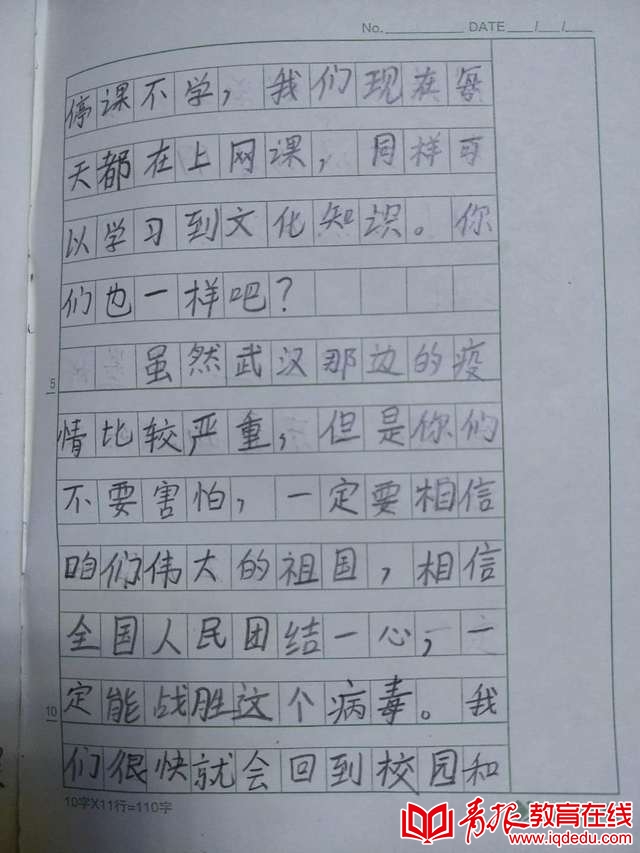 No. DATE / /
停课不学，我们现在每
天都在上网课，同样可
以学习到文化知识。你
们也一样吧？
虽然武汉那边的疫
5
情比较严重，但是你们
不要害怕，一定要相信
咱们伟大的祖国，相信
全国人民团结一心，一
定能战胜这个病毒。我
10
们很快就会回到校园和
10字X11行=110字
青报教育在线
www.iqdedu.com